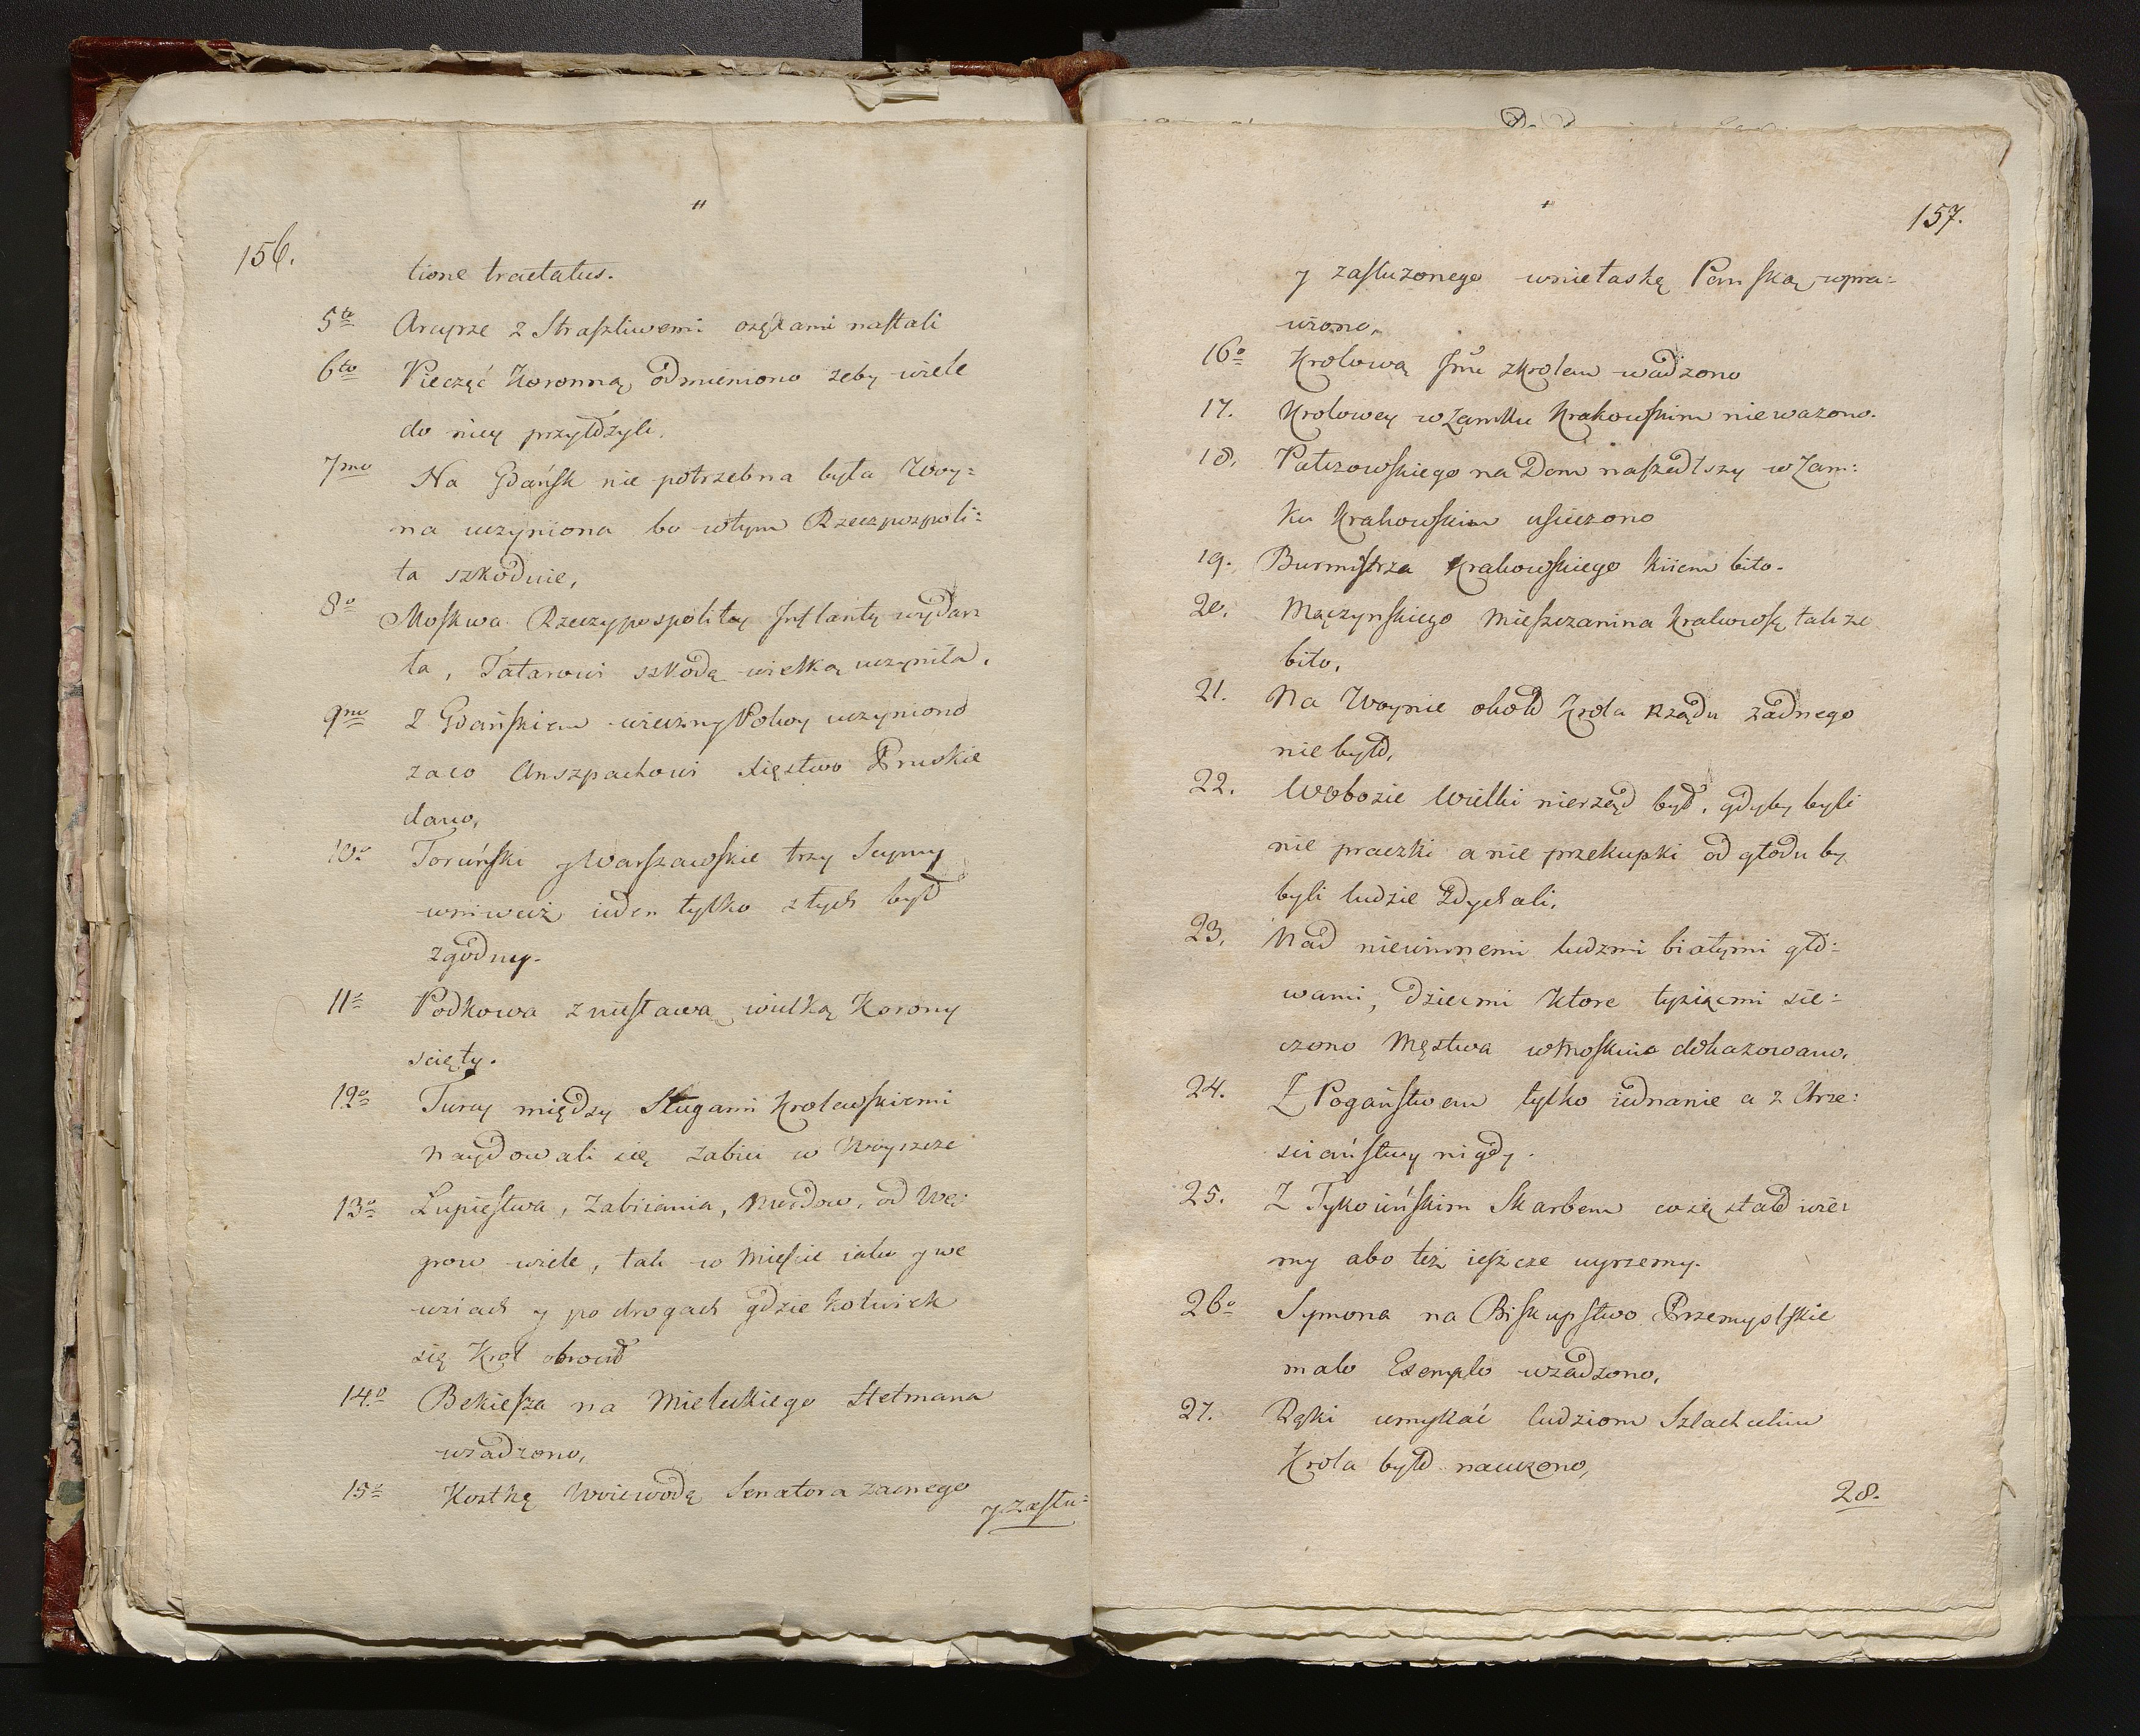 "
156.
tione tractatus.
5to Arcyrze z Straszliwemi oczękami nastali
6to Pieczęć Koronną odmieniono zeby wiele
do niey przyłożyli.
7mo Na Gdańsk nie potrzebna była Woy=
na uczyniona bo wtym Rzeczpospoli=
ta szkoduie,
8o Moskwa Rzeczypospolitey Inflanty wydar
ła, Tatarowi szkodę wielką uczyniła.
9no Z Gdańskiem wieczny Pokoy uczyniono
zaco Anszpachowi Xięstwo Pruskie
dano,
10o Toruński y Warszawskie trzy Seymy
wniwecz ieden tylko z tych był
zgodny.
11o Podkowa z niesławą wielką Korony
scięty.
12o Turcy między Sługami Krolewskiemi
naydowali się zabici w Woyszcze
13o Łupiestwa, Zabiiania, Mordow, od Wę=
grow wiele, tak w Mieście iako y we
wsiach y po drogach gdzie kolwiek
się Krol obrocił
14o Bekiesza na Mieleckiego Hetmana
wsadzono,
15o Kostkę Woiewodę Senatora zacnego
y zasłu=
"
157.
y zasłuzonego wniełaskę Panską wpra=
wiono,
16o Krolową Jmć zkrolem wadzono
17. Krolowey w Zamku Krakowskim niewazono.
18. Patrzowskiego na Dom naszedłszy w Zam=
ku Krakowskim usieczono
19. Burmistrza Krakowskiego kiiem bito.
20. Mączynskiego Mieszczanina Krakowsk: takze
bito.
21. Na Woynie około Krola Rządu zadnego
nie było,
22. Wobozie Wielki nierząd był, gdyby byli
nie praczki a nie przekupki od głodu by
byli ludzie zdychali.
23. Nad niewinnemi ludzmi białymi gło=
wami, dziecmi ktore tysiącmi sie=
czono Męstwa w Moskwie dokazowano.
24. Z Pogaństwem tylko iednanie a z Chrze=
sciaństwy nigdy.
25. Z Tykocińskim Skarbem co się stało wie=
my abo też ieszcze uyrzemy.
26o Symona na Biskupstwo Przemyslskie
malo Exemplo wsadzono,
27. Ręki umykać ludziom Szlachetnim
Krola było nauczono,
28.